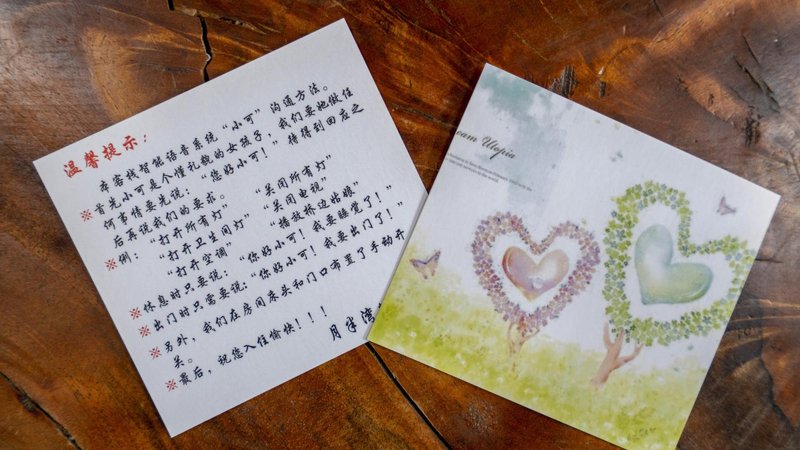 温馨提示:
本客栈智能语音系统“小可”沟通方法。
※首先小可是个懂礼貌的女孩子,我们要她做任
何事情要先说:“您好小可!”待得到回应之
后再说我们的要求。
※例:“打开所有灯” “关闭所有灯”
“打开卫生间灯” “关闭电视”
“打开空调” “播放桥边姑娘”
※休息时只要说:“您好小可!我要睡觉了!”
※出门时只需要说:“您好小可!我要出门了!”
※另外,我们在房间床头和门口布置了手动开
关。
※最后,祝您入住愉快!!!
月半湾
eam Utopia